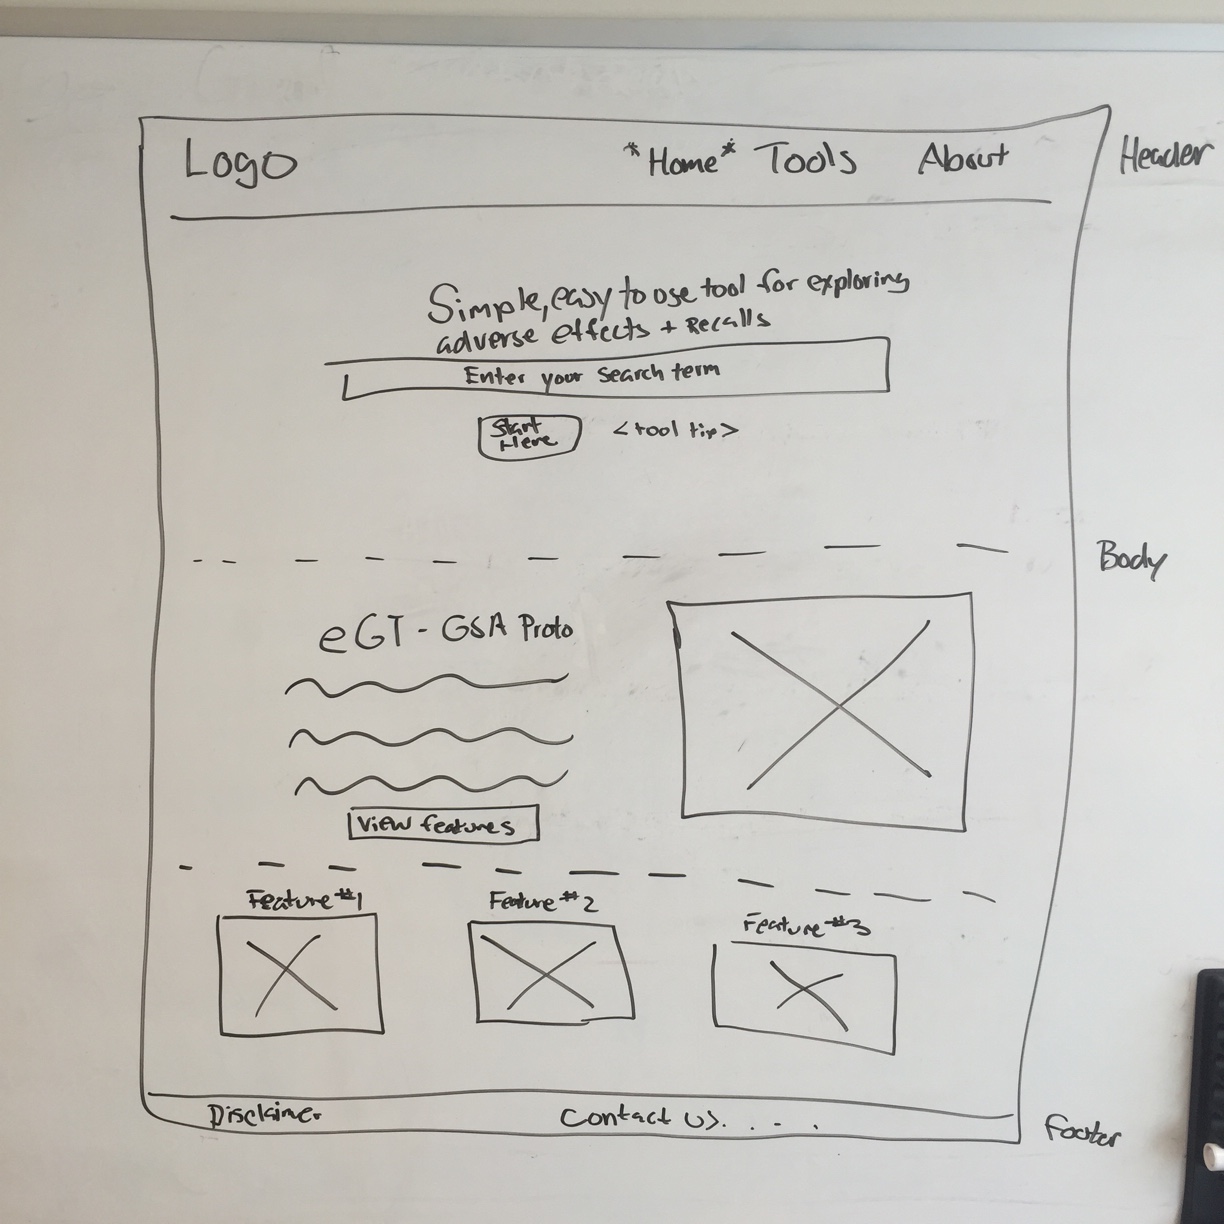 Logo
*Home* Tools About
Header
Simple, easy to use tool for exploring
adverse effects + Recalls
Enter your search term
Start
Here
<tool tip>
Body
eGT - GSA Proto
View features
Feature #1
Feature #2
Feature #3
Disclaimer
Contact us. . - .
Footer